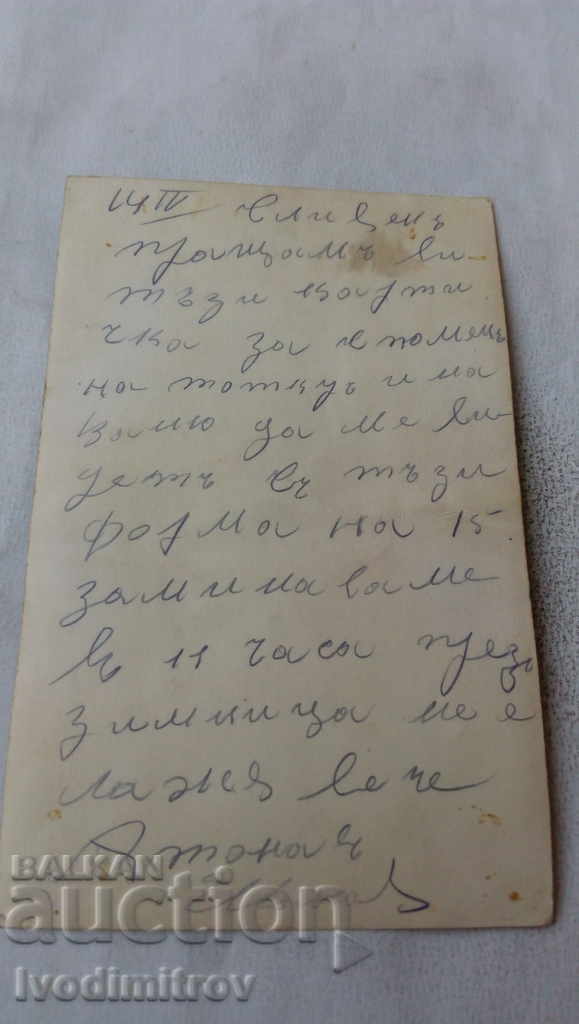 14 III Сливенъ
пращамъ ви
тъзи карти
чка за споменъ
на и на
да ме ви-
детъ въ тъзи
форма на 15
заминаваме
въ 11 часа презъ
Зимница не е
лажа вече
BALKAN
auction
Ivodimitrov